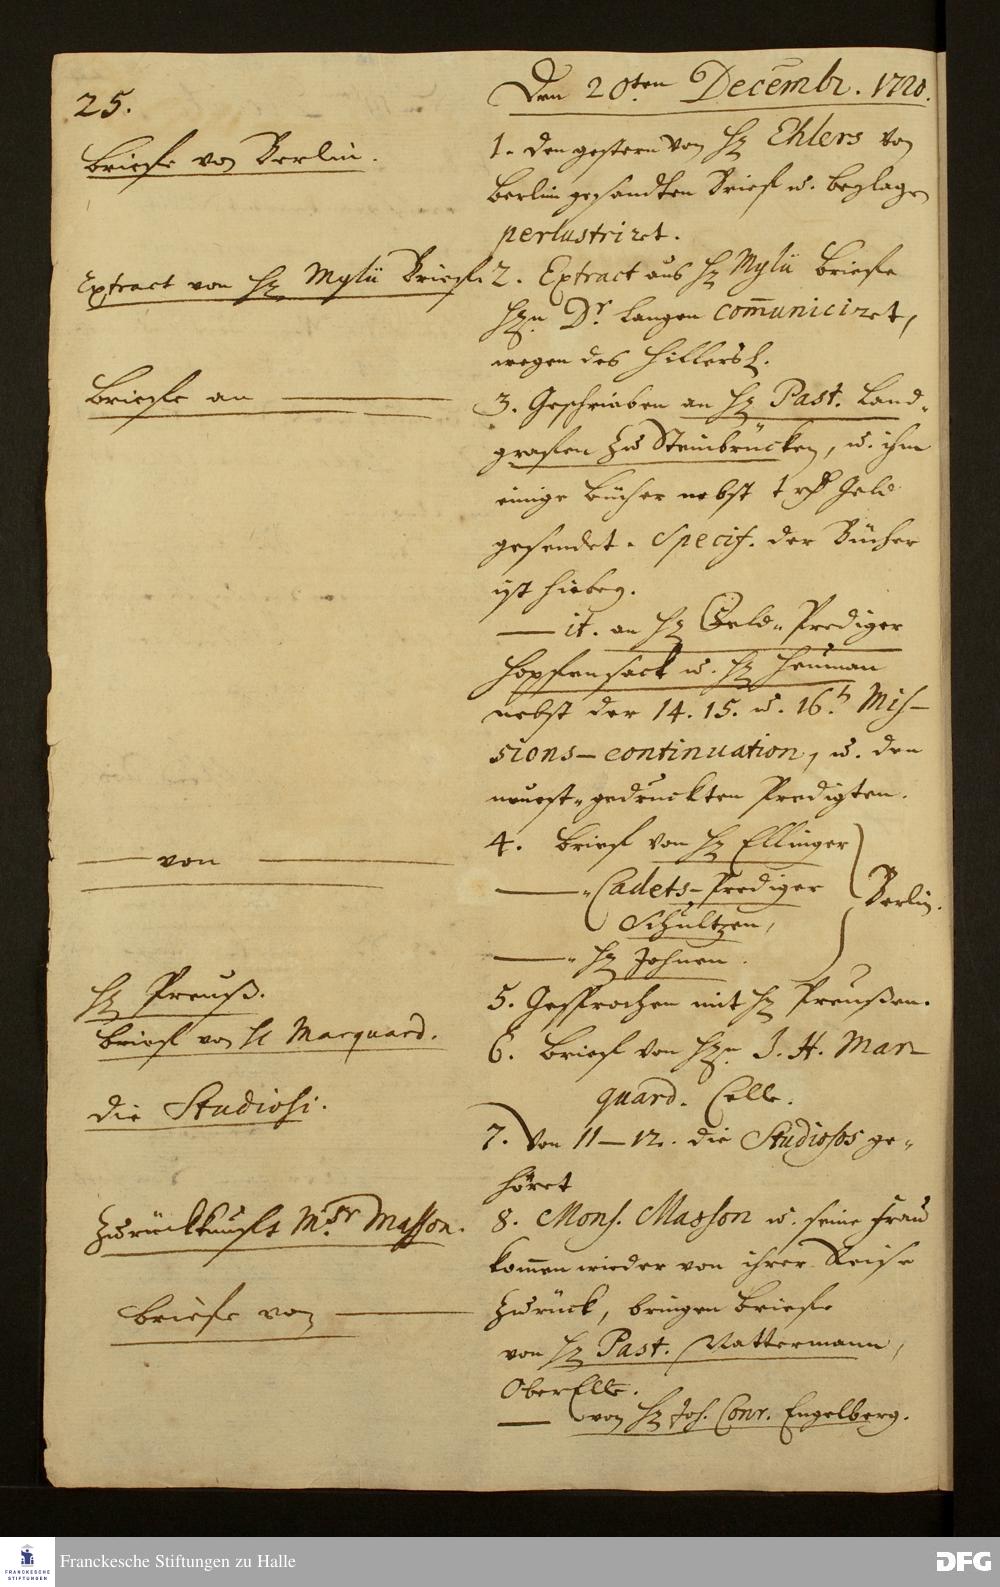 25.
Den 20ten Decembr. 1720.
Briefe von Berlin.
1. den gestern von H. Ehlers von
Berlin gesandten Brief u. beylagen
perlustriret.
Extract von H. Mylii Briefe.
2. Extract aus H. Mylii briefe
Hn. Dr. Langen com̄uniciret,
wegen des
Briefe an
3. Geschrieben an H. Past. Land-
grafen zu Steinbrücken, u. ihm
einige bücher nebst 1 rth Geld
gesendet. Specif. der Bücher
ist hiebey.
— it. an H. Feld-Prediger
Hopfensack u. H. Heuman
nebst der 14. 15. u. 16. Mis-
sions-continuation, u. den
neuest-gedruckten Predigten.
— von —
4. brief von H. Ellinger
— " Cadets-Prediger
Schultzen,
Berlin.
— " H. Johnen.
H. Preuß.
5. Gesprochen mit H. Preußen.
brief von H Marquard.
6. brief von Hn. J. H. Mar-
quard. Celle.
die Studiosi.
7. Von 11–12. die Studiosos ge-
höret
Zurückkunft Msr. Masson.
8. Mons. Masson u. seine Frau
kom̄en wieder von ihrer Reise
zurück, bringen briefe
briefe von —
von H. Past. Rattermann,
OberElle.
— von H. Joh. Conr. Engelberg.
FRANCKESCHE
STIFTUNGEN
Franckesche Stiftungen zu Halle
DFG